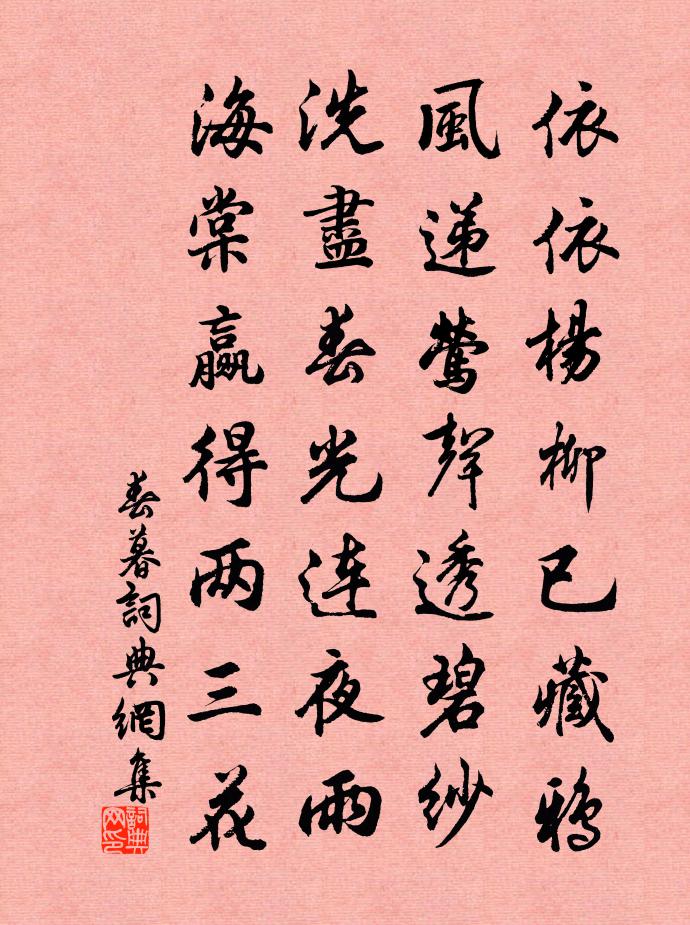 依依楊柳已藏鴉
風遞鶯聲透碧紗
洗盡春光連夜雨
海棠贏得两三花
春暮詞典網集
詞典网印